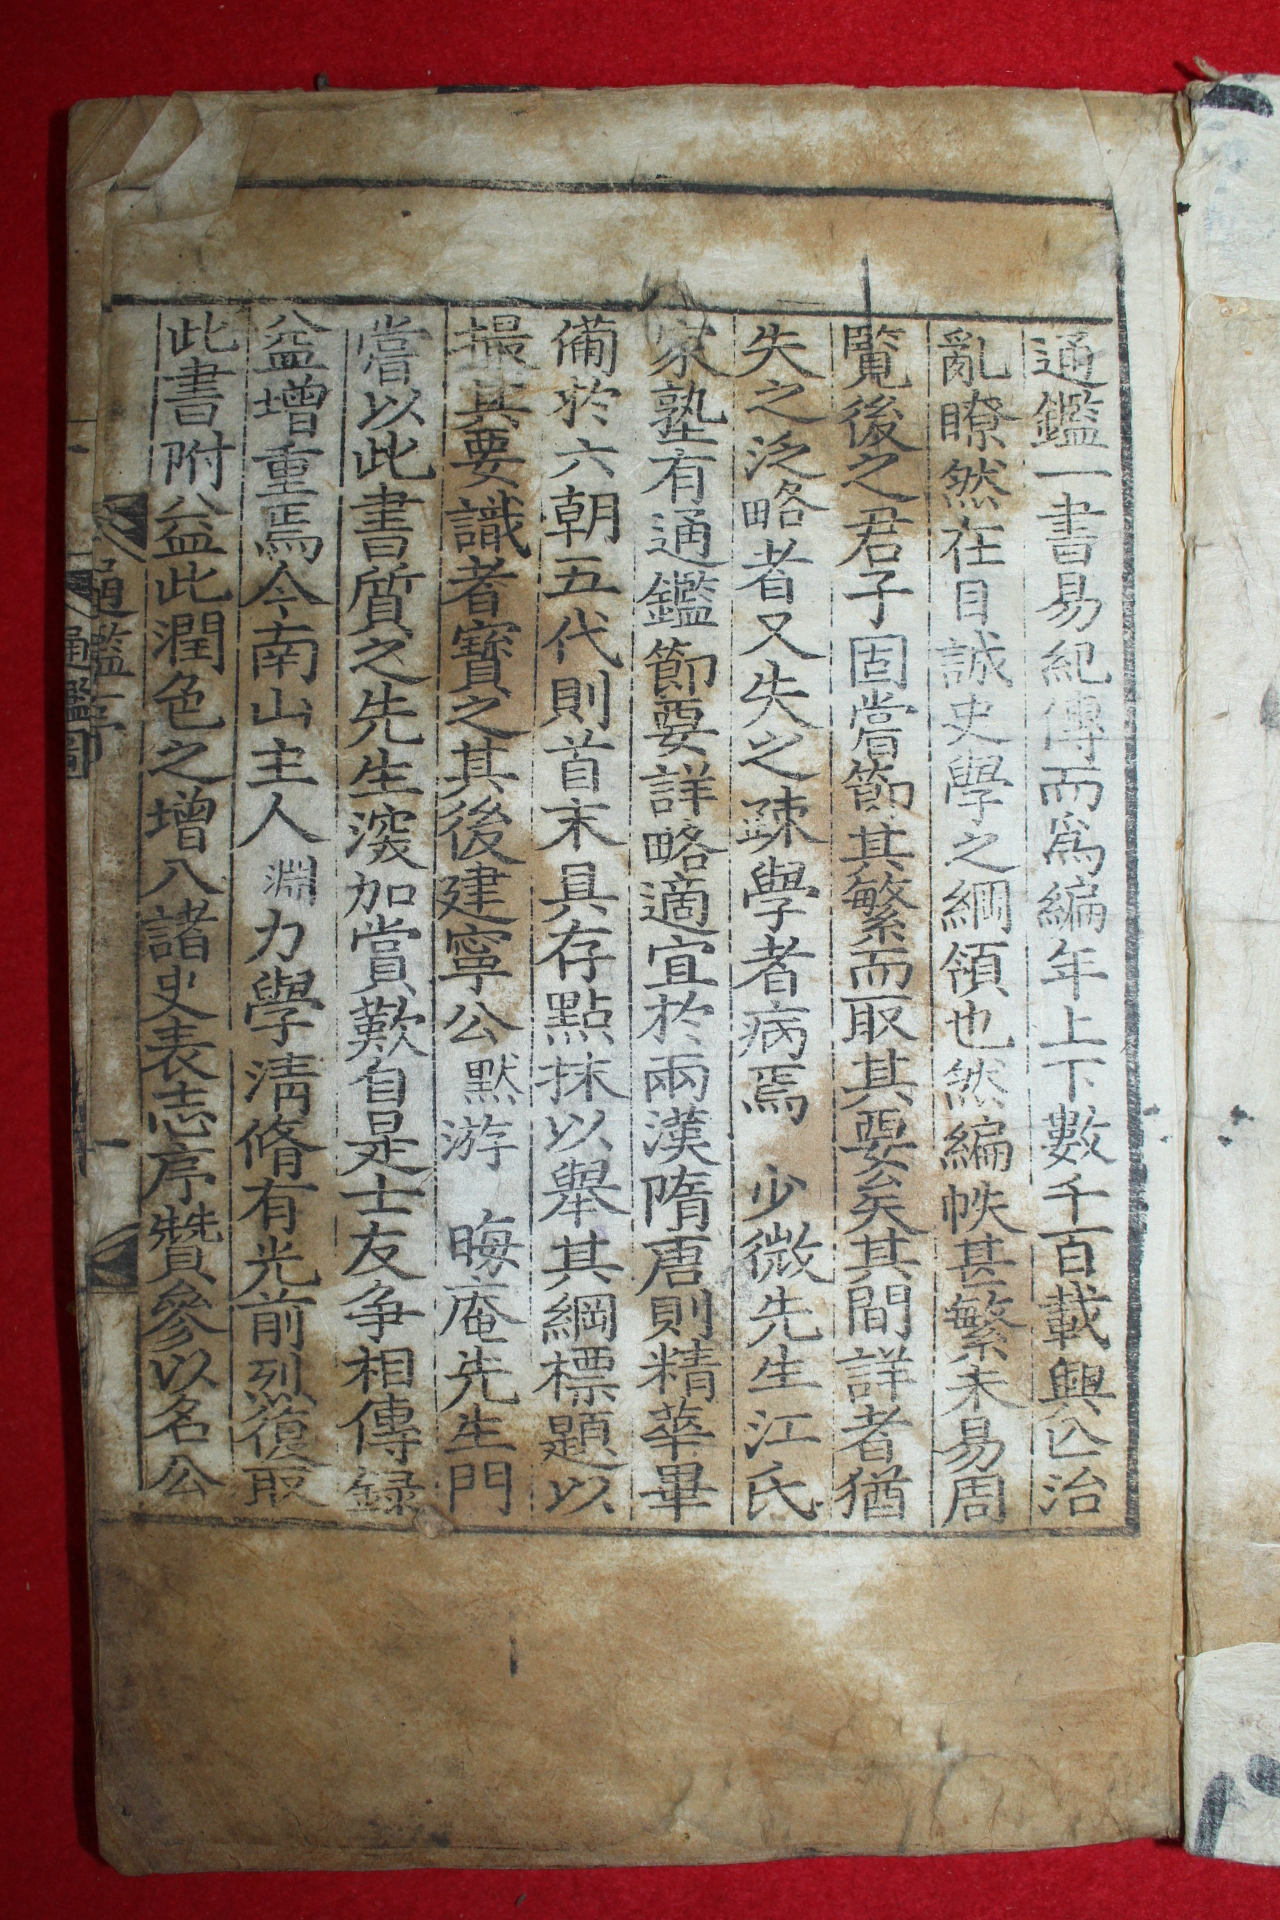 通鑑一書易紀傳而爲編年上下數千百載興亾治
亂瞭然在目誠史學之綱領也然編帙甚繁未易周
覧後之君子固嘗節其繁而取其要矣其間詳者猶
失之泛略者又失之踈學者病焉 少微先生江氏
家塾有通鑑節要詳略適宜於兩漢隋唐則精華畢
備於六朝五代則首末具存點抹以舉其綱標題以
撮其要識者寳之其後建寧公默游 晦庵先生門
嘗以此書質之先生深加賞歎自是士友争相傳錄
益增重焉今南山主人淵力學淸脩有光前烈復取
此書附益此潤色之增入諸史表志序贊參以名公
通鑑序
一
通鑑圖